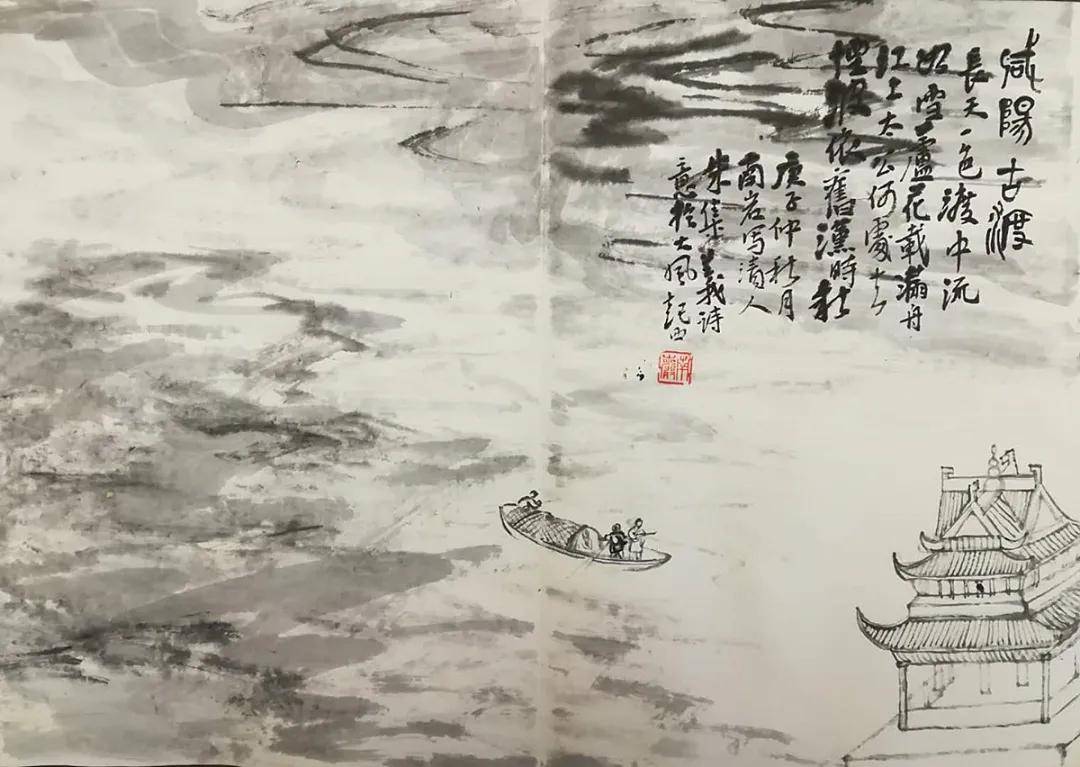 咸陽古渡
長天一色渡中流
如雪蘆花載滿舟
江上太公何處去
煙波依舊漢時秋
庚子仲秋月
南岩写清人
朱集義诗
意於大風起西